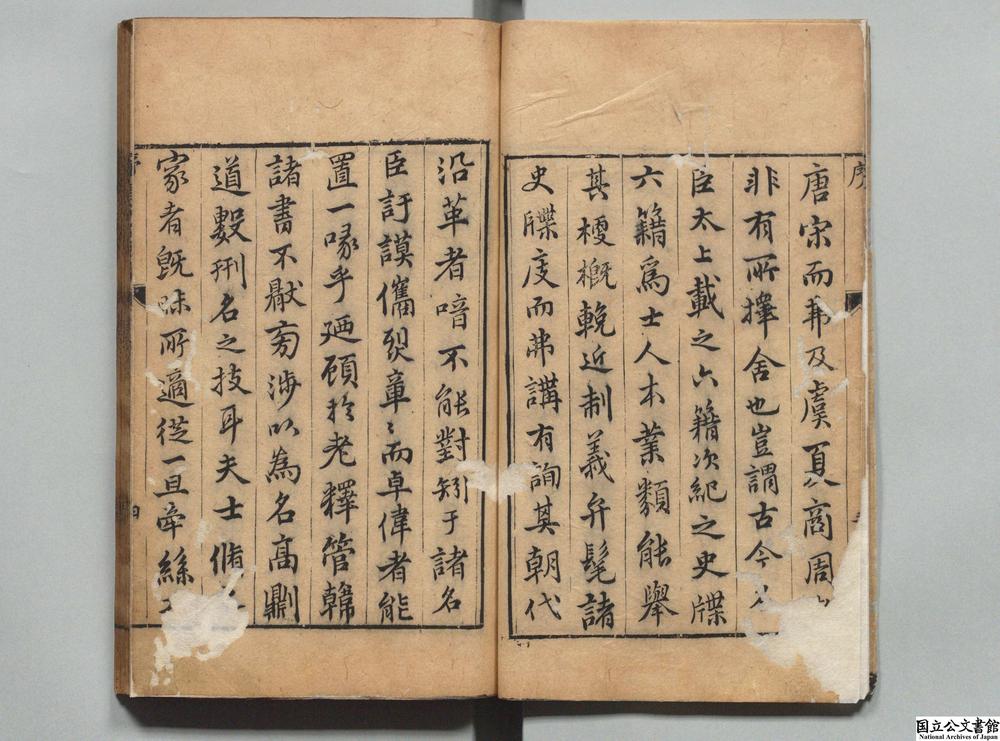 序
唐宋而弗及虞夏商周
非有所擇舍也豈謂古今
臣太上載之六籍次紀之史牒
六籍爲士人本業類能舉
其梗概輓近制義弁髦諸
史牒庋而弗講有詢其朝代
沿革者喑不能對矧于諸名
臣訏謨儁烈章〻而卓偉者能
置一喙乎廼顧於老釋管韓
諸書不厭旁涉以為名高劘
道數刑名之技耳夫士脩
家者旣昧所適從一旦牽絲
序
四
国立公文書館
National Archives of Japan